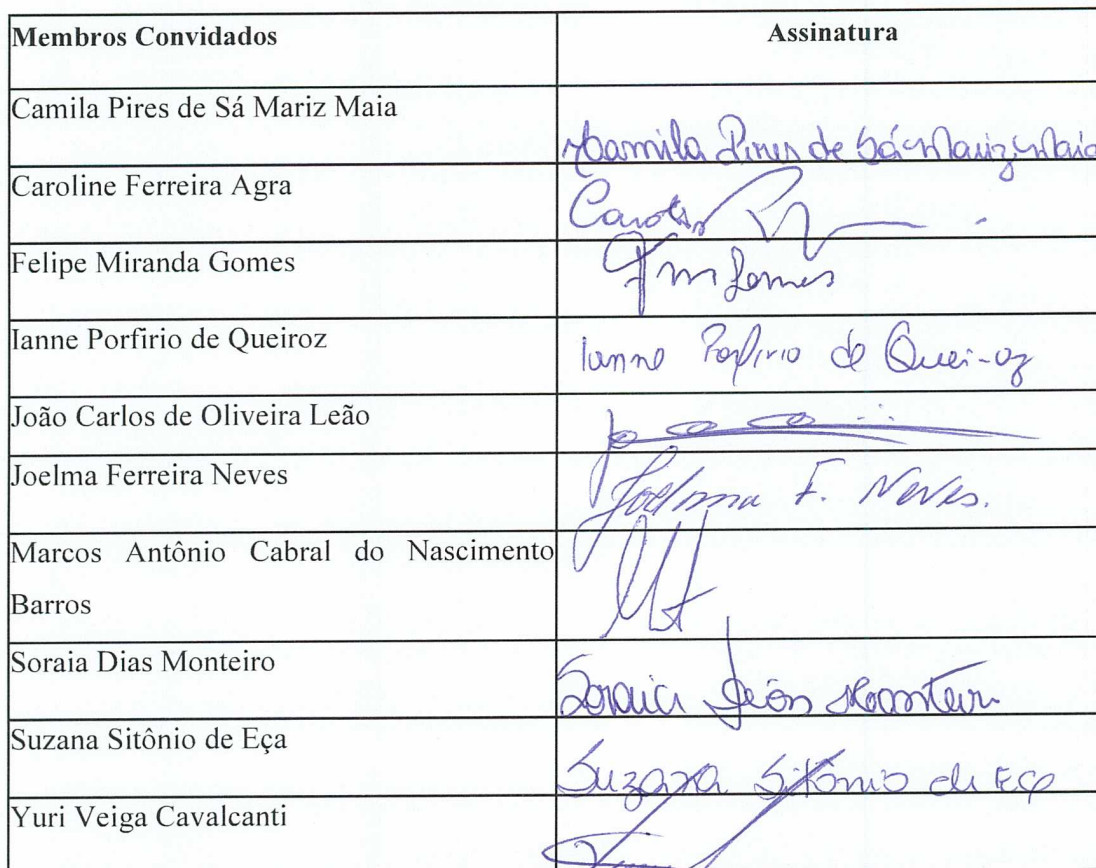 Membros Convidados Assinatura
Camila Pires de Sá Mariz Maia
Camila Pires de Sá Mariz Maia
Caroline Ferreira Agra
Felipe Miranda Gomes
Fm Gomes
Ianne Porfirio de Queiroz
Ianne Porfirio de Queiroz
João Carlos de Oliveira Leão
Joelma Ferreira Neves
Joelma F. Neves.
Marcos Antônio Cabral do Nascimento
Barros
Soraia Dias Monteiro
Soraia Dias Monteiro
Suzana Sitônio de Eça
Suzana Sitônio de Eça
Yuri Veiga Cavalcanti